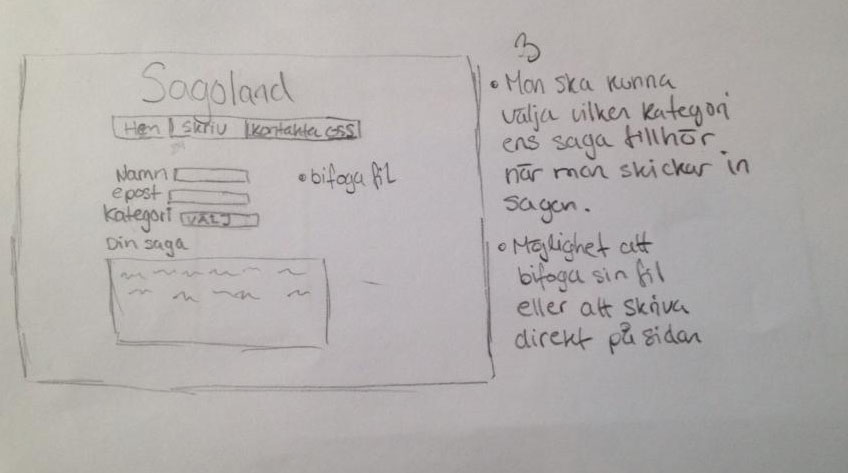 Sagoland
Hem Skriv Kontakta oss
Namn
epost
Kategori VÄLJ
Din saga
• bifoga fil
3
• Man ska kunna
välja vilken kategori
ens saga tillhör
när man skickar in
sagan.
• Möjlighet att
bifoga sin fil
eller att skriva
direkt på sidan